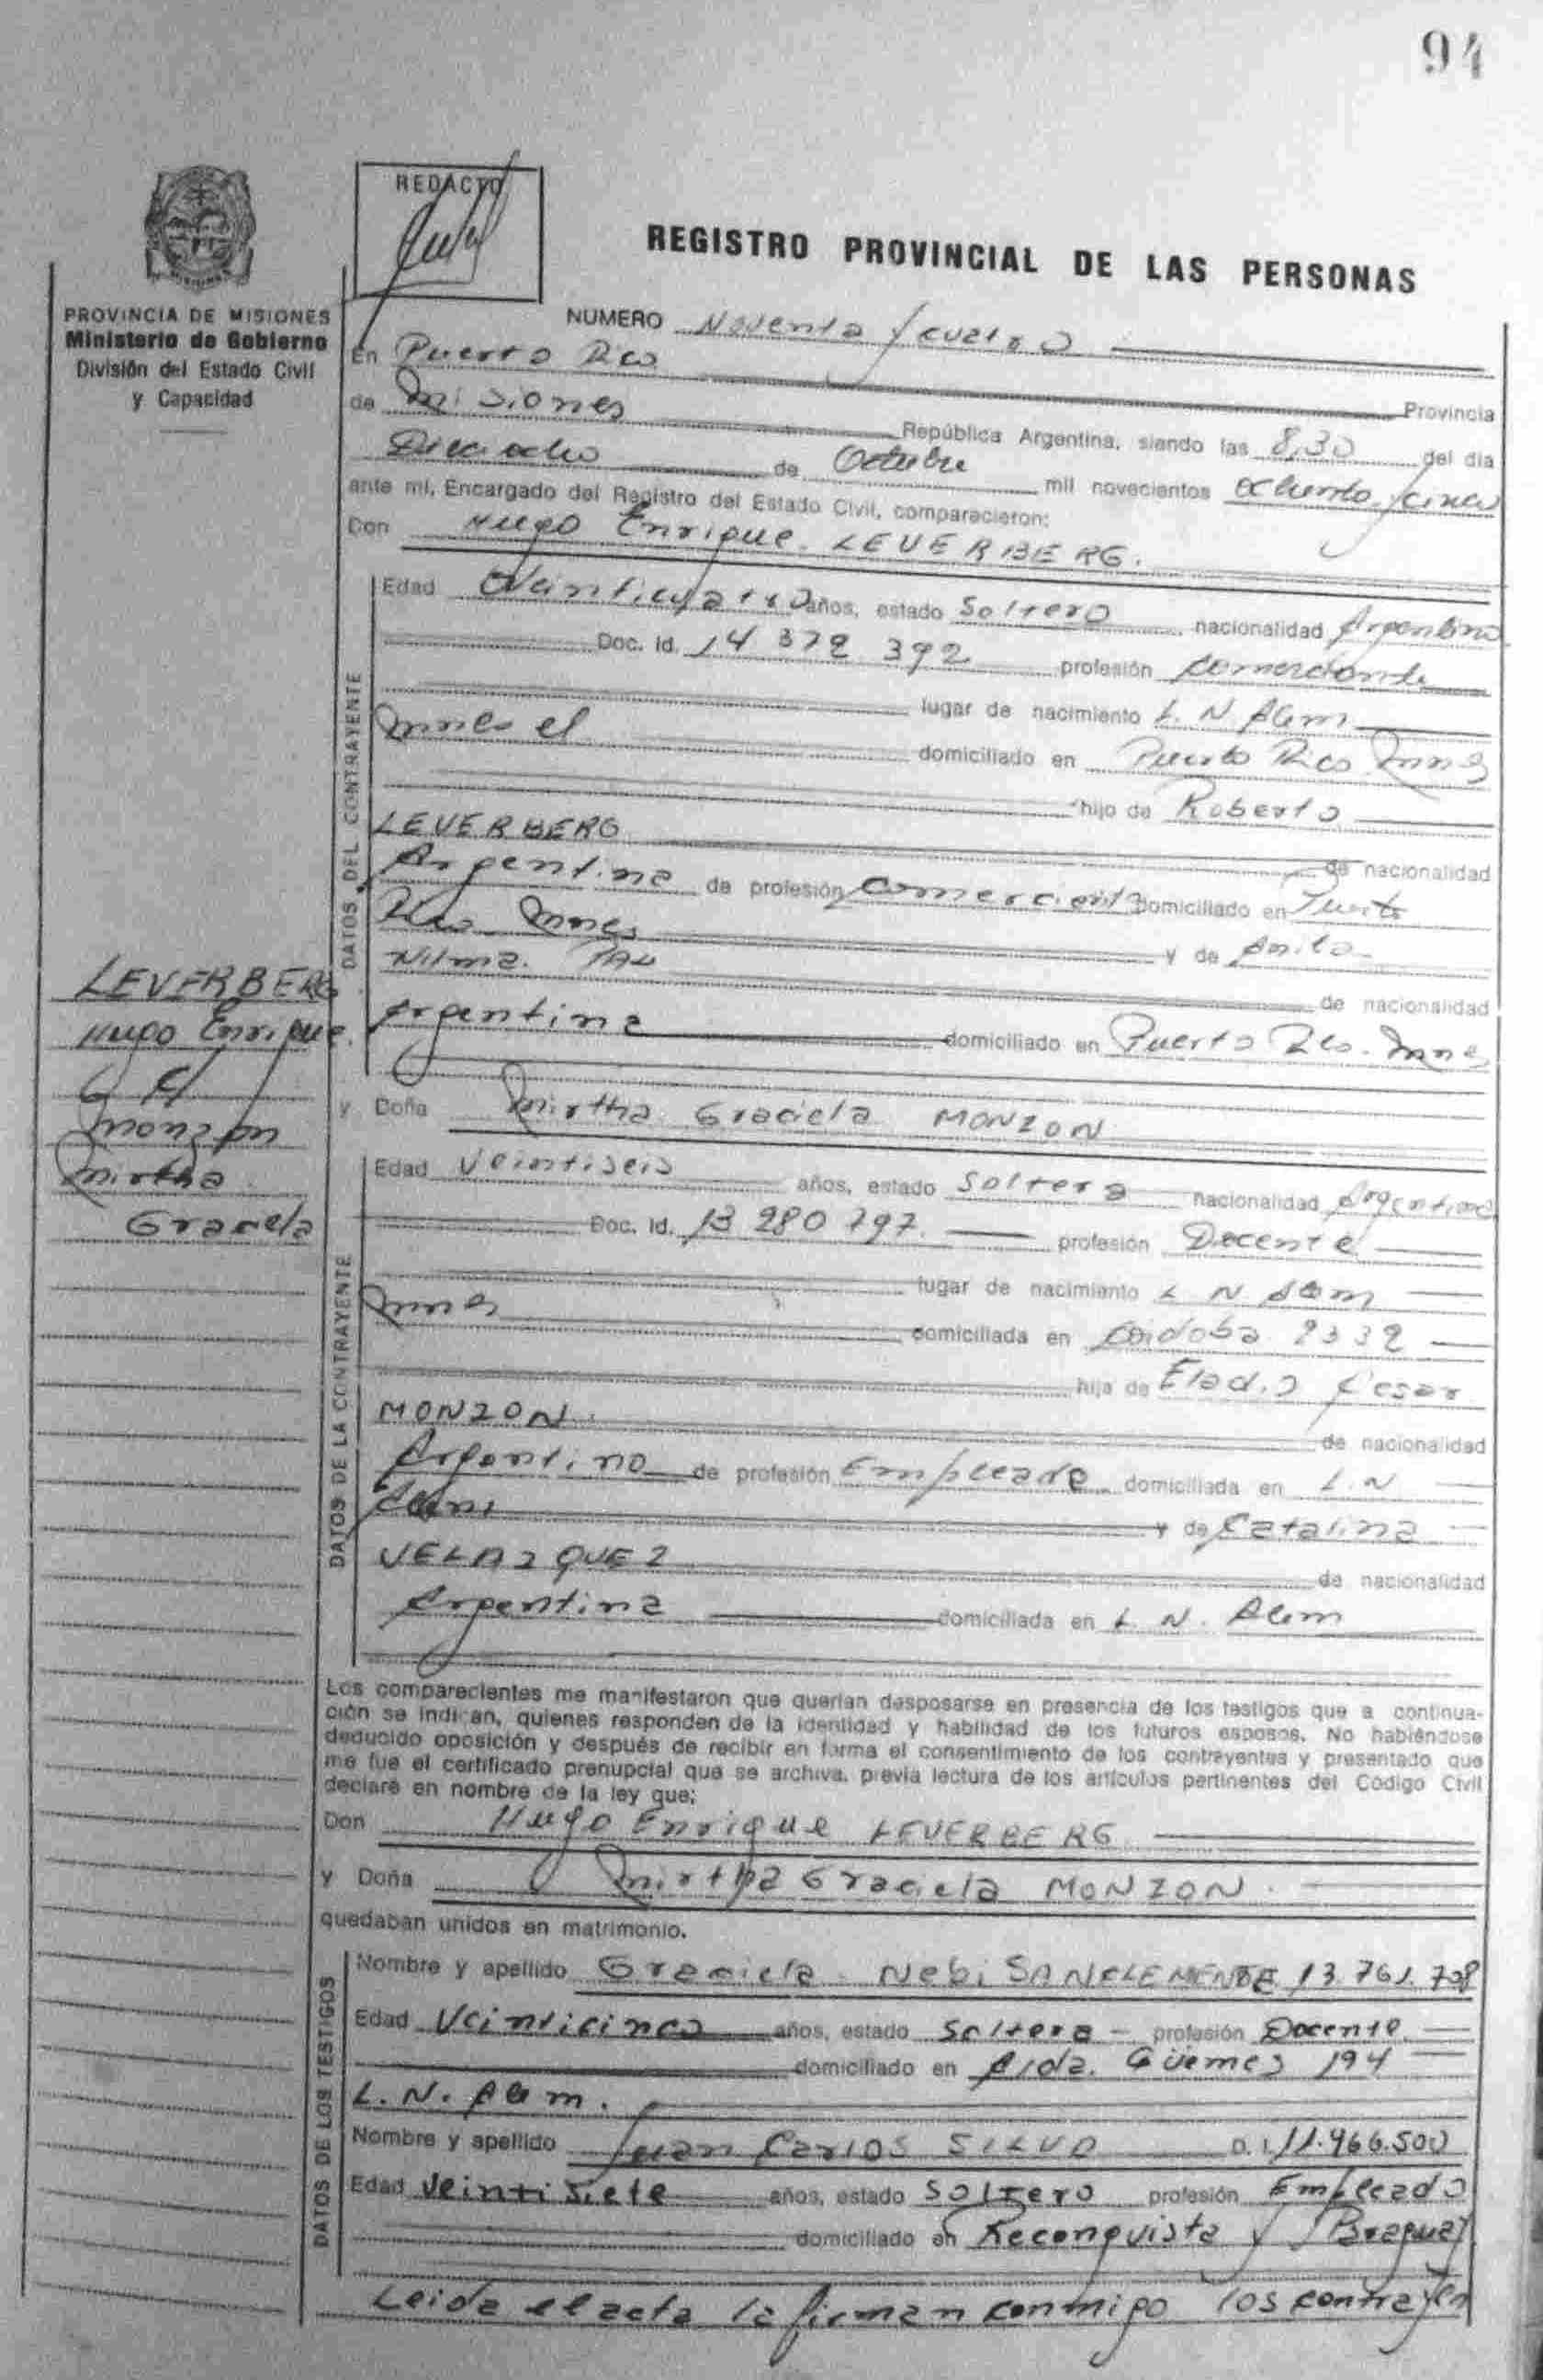 94
REDACTO
REGISTRO PROVINCIAL DE LAS PERSONAS
PROVINCIA DE MISIONES
Ministerio de Gobierno
División del Estado Civil
y Capacidad
NUMERO Noventa y cuatro
En Puerto Rico
Provincia
de Misiones República Argentina, siendo las 8,30 del día
Dieciocho de Octubre mil novecientos ochenta y cinco
ante mí, Encargado del Registro del Estado Civil, comparecieron:
Don Hugo Enrique LEVERBERG.
DATOS DEL CONTRAYENTE
Edad Veinticuatro años, estado Soltero nacionalidad Argentino
Doc. Id. 14 372 392 profesión Comerciante
lugar de nacimiento L. N. Alem
Mnes el domiciliado en Puerto Rico Mnes
hijo de Roberto
LEVERBERG de nacionalidad
Argentina de profesión Comerciant domiciliado en Puerto
Rico Mnes y de Anita
Nilma. TAU de nacionalidad
Argentina domiciliado en Puerto Rco. Mnes
LEVERBERG
Hugo Enrique.
c/
Monzon
Mirtha
Graciela
y Doña Mirtha Graciela MONZON
DATOS DE LA CONTRAYENTE
Edad Veintiseis años, estado Soltera nacionalidad Argentina
Doc. Id. 13 280 797. profesión Docente
lugar de nacimiento L N Alem
Mnes domiciliada en Córdoba 2332
hija de Eladio Cesar
MONZON. de nacionalidad
Argentino de profesión Empleado domiciliada en L. N
Alem y de Catalina
VELAZQUEZ de nacionalidad
Argentina domiciliada en L. N. Alem
Los comparecientes me manifestaron que querían desposarse en presencia de los testigos que a continua-
ción se indican, quienes responden de la identidad y habilidad de los futuros esposos. No habiéndose
deducido oposición y después de recibir en forma el consentimiento de los contrayentes y presentado que
me fue el certificado prenupcial que se archiva, previa lectura de los artículos pertinentes del Código Civil
declaré en nombre de la ley que:
Don Hugo Enrique LEVERBERG
y Doña Mirtha Graciela MONZON.
quedaban unidos en matrimonio.
DATOS DE LOS TESTIGOS
Nombre y apellido Graciela Nebi SANCLEMENTE 13.761.708
Edad Veinticinco años, estado Soltera profesión Docente
domiciliado en Alda. Güemes 194
L. N. Alem.
Nombre y apellido Juan Carlos SILVO D. I. 11.966.500
Edad Veintisiete años, estado Soltero profesión Empleado
domiciliado en Reconquista y Paraguay
Leida el acta la firman conmigo los contrayen